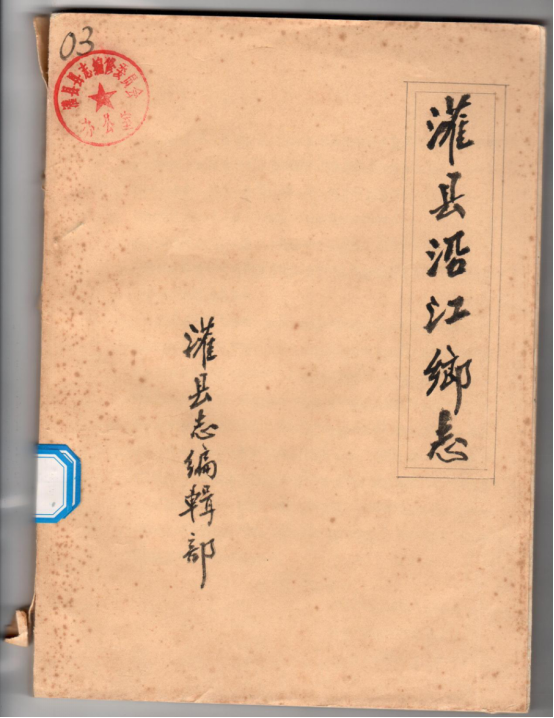 03
灌县县志编修委员会
办公室
灌县沿江鄉志
灌县志编輯部